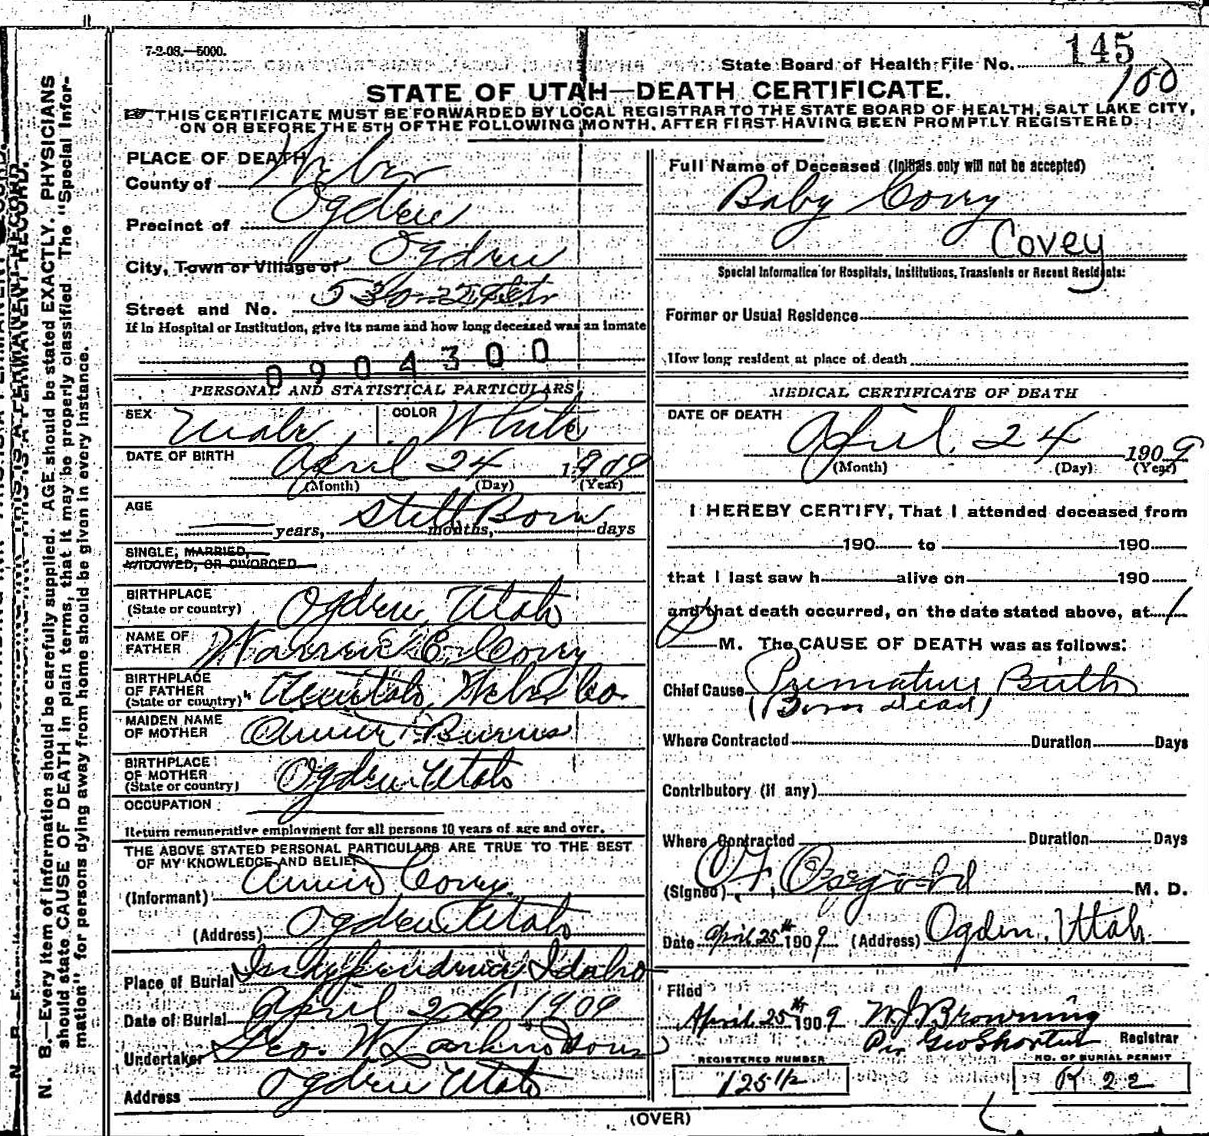 7-2-08.—5000.
State Board of Health File No. 145
100
STATE OF UTAH—DEATH CERTIFICATE.
THIS CERTIFICATE MUST BE FORWARDED BY LOCAL REGISTRAR TO THE STATE BOARD OF HEALTH, SALT LAKE CITY,
ON OR BEFORE THE 5TH OF THE FOLLOWING MONTH, AFTER FIRST HAVING BEEN PROMPTLY REGISTERED.
PLACE OF DEATH
County of Weber
Precinct of Ogden
City, Town or Village of Ogden
Street and No. 530
If in Hospital or Institution, give its name and how long deceased was an inmate
0904300
PERSONAL AND STATISTICAL PARTICULARS
SEX Male COLOR White
DATE OF BIRTH April 24 1909
(Month) (Day) (Year)
AGE Still Born
years, months, days
SINGLE, MARRIED,
WIDOWED, OR DIVORCED
BIRTHPLACE
(State or country) Ogden, Utah
NAME OF
FATHER Warren E. Covy
BIRTHPLACE
OF FATHER
(State or country) Weber Co.
MAIDEN NAME
OF MOTHER Annie Burns
BIRTHPLACE
OF MOTHER
(State or country) Ogden Utah
OCCUPATION
Return remunerative employment for all persons 10 years of age and over.
THE ABOVE STATED PERSONAL PARTICULARS ARE TRUE TO THE BEST
OF MY KNOWLEDGE AND BELIEF
(Informant) Annie Covy
(Address) Ogden Utah
Place of Burial Independence Idaho
Date of Burial April 26 1909
Undertaker Geo. W Larkin & Sons
Address Ogden Utah
Full Name of Deceased (Initials only will not be accepted)
Baby Covy
Covey
Special Information for Hospitals, Institutions, Transients or Recent Residents:
Former or Usual Residence
How long resident at place of death
MEDICAL CERTIFICATE OF DEATH
DATE OF DEATH
April 24 1909
(Month) (Day) (Year)
I HEREBY CERTIFY, That I attended deceased from
190 to 190
that I last saw h alive on 190
and that death occurred, on the date stated above, at 1
M. The CAUSE OF DEATH was as follows:
Chief Cause Premature Birth
(Born dead)
Where Contracted Duration Days
Contributory (if any)
Where Contracted Duration Days
(Signed) Osgood M. D.
Date April 25th 1909 (Address) Ogden, Utah
Filed
April 25th 1909 W J Browning
Per Geo Shorten Registrar
REGISTERED NUMBER
125 1/2
NO. OF BURIAL PERMIT
R 22
(OVER)
N. B.—Every item of information should be carefully supplied. AGE should be stated EXACTLY. PHYSICIANS
should state CAUSE OF DEATH in plain terms, that it may be properly classified. The "Special Infor-
mation" for persons dying away from home should be given in every instance.